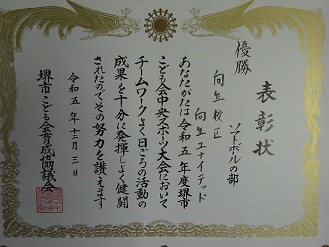 表彰状
優勝
ソフトボールの部
向丘校区
向丘ユナイテッド
あなたがたは令和五年度堺市
こども会中央スポーツ大会において
チームワークよく日ごろの活動の
成果を十分に発揮しよく健闘
されたのでその努力を讃えます
令和五年十二月三日
堺市こども会育成協議会